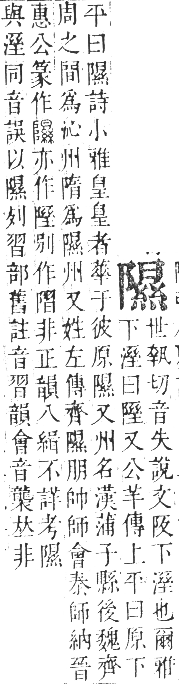 隰
世執切音失說文阪下溼也爾雅
下溼曰 又公羊傳上平曰原下
平曰隰詩小雅皇皇者華于彼原隰又州名漢蒲子縣後魏齊
周之間爲沁州隋爲隰州又姓左傳齊隰朋帥師會秦師納晉
惠公篆作 亦作 別作 非正韻八緝不詳考隰
與溼同音誤以隰列習部舊註音習韻會音襲𠀤非